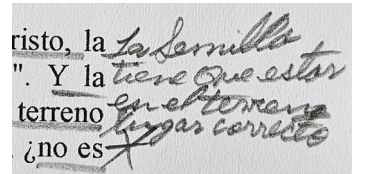 risto, la La Semilla
". Y la tiene que estar
terreno en el terreno
lugar correcto
¿no es